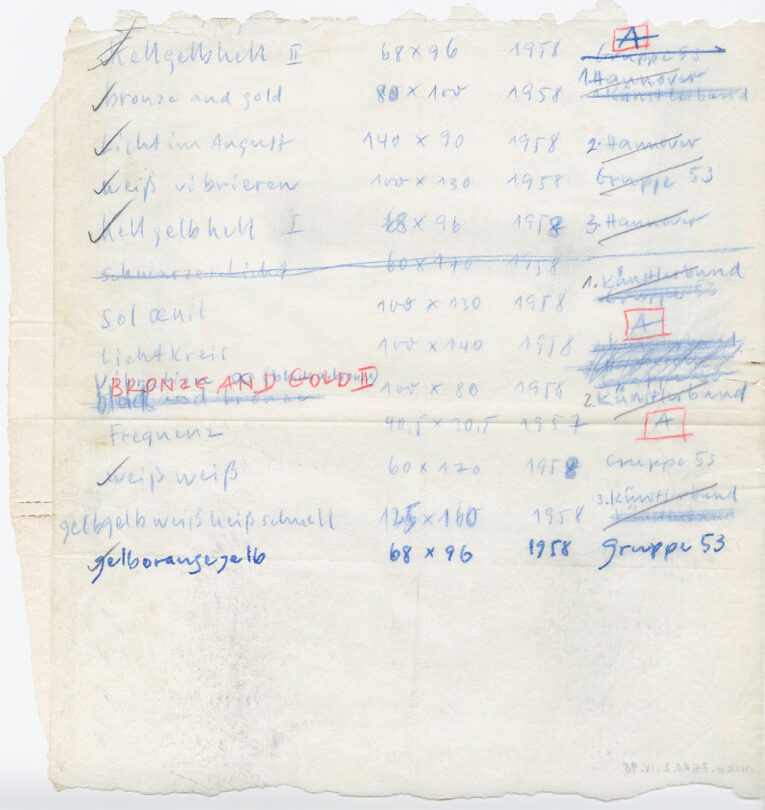 A
Hellgelbhell II 68 x 96 1958 Gruppe 53
1. Hannover
bronze and gold 80 x 100 1958 Künstlerband
Licht im August 140 x 90 1958 2. Hannover
weiß vibrieren 100 x 130 1958 Gruppe 53
hellgelbhell I 68 x 96 1958 3. Hannover
schwarzes Licht 60 x 170 1958
1. Künstlerbund
Gruppe 53
sol œnil 100 x 130 1958 A
Lichtkreis 100 x 140 1958
BRONZE AND GOLD II
black and bronze 100 x 80 1958 2. Künstlerbund
Frequenz 40,5 x 30,5 1957 A
weiß weiß 60 x 170 1958 Gruppe 53
3. Künstlerbund
gelbgelbweißheißschnell 125 x 160 1958
gelborangegelb 68 x 96 1958 Gruppe 53
inv.nr. ZERO.2.IV.98